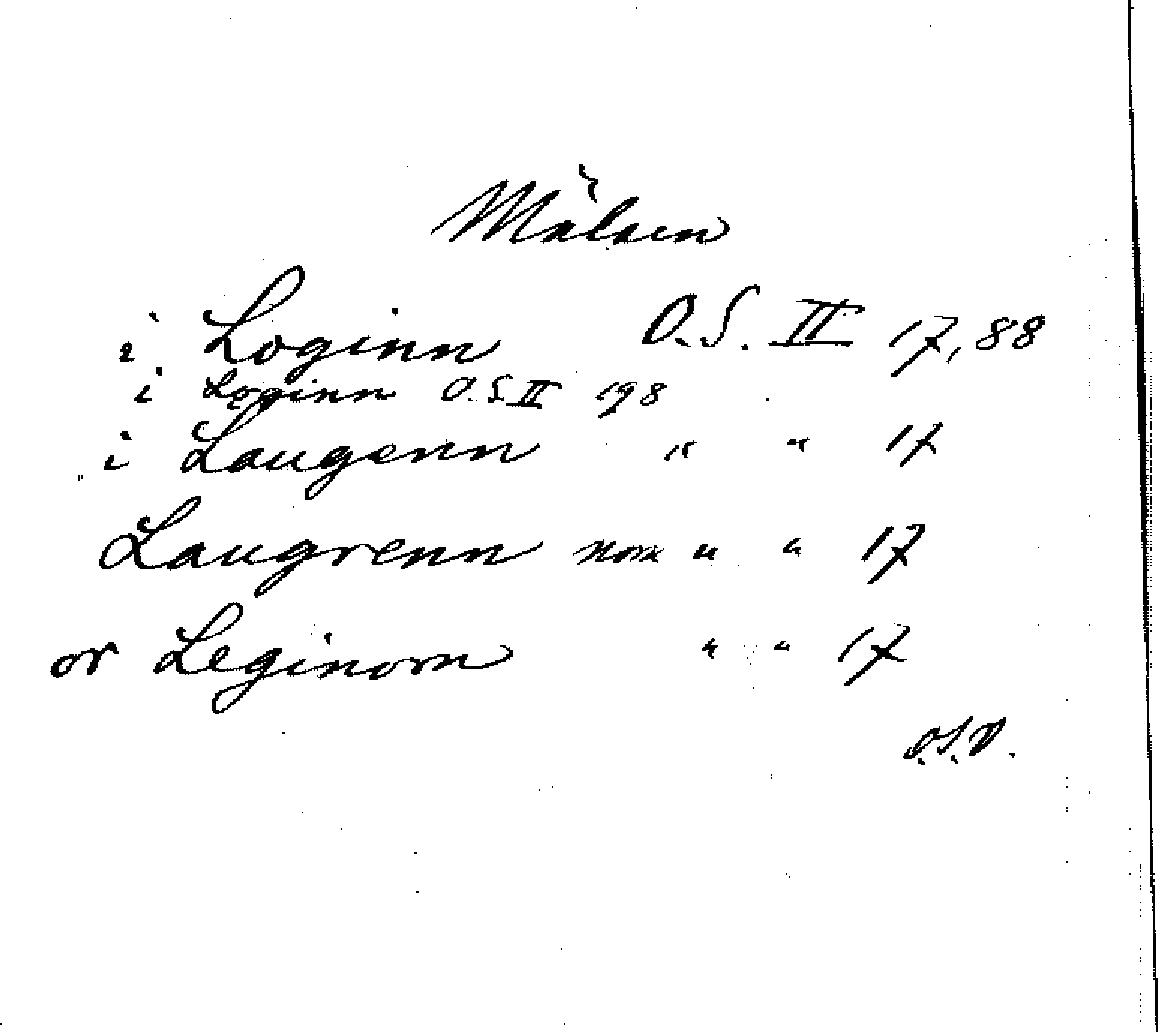 Målsen
i Loginn O.S. II 17, 88
i Lǫginn O.S. II 198
i Laugenn " " 17
Laugrenn nom " " 17
or Leginom " " 17
O.S.D.